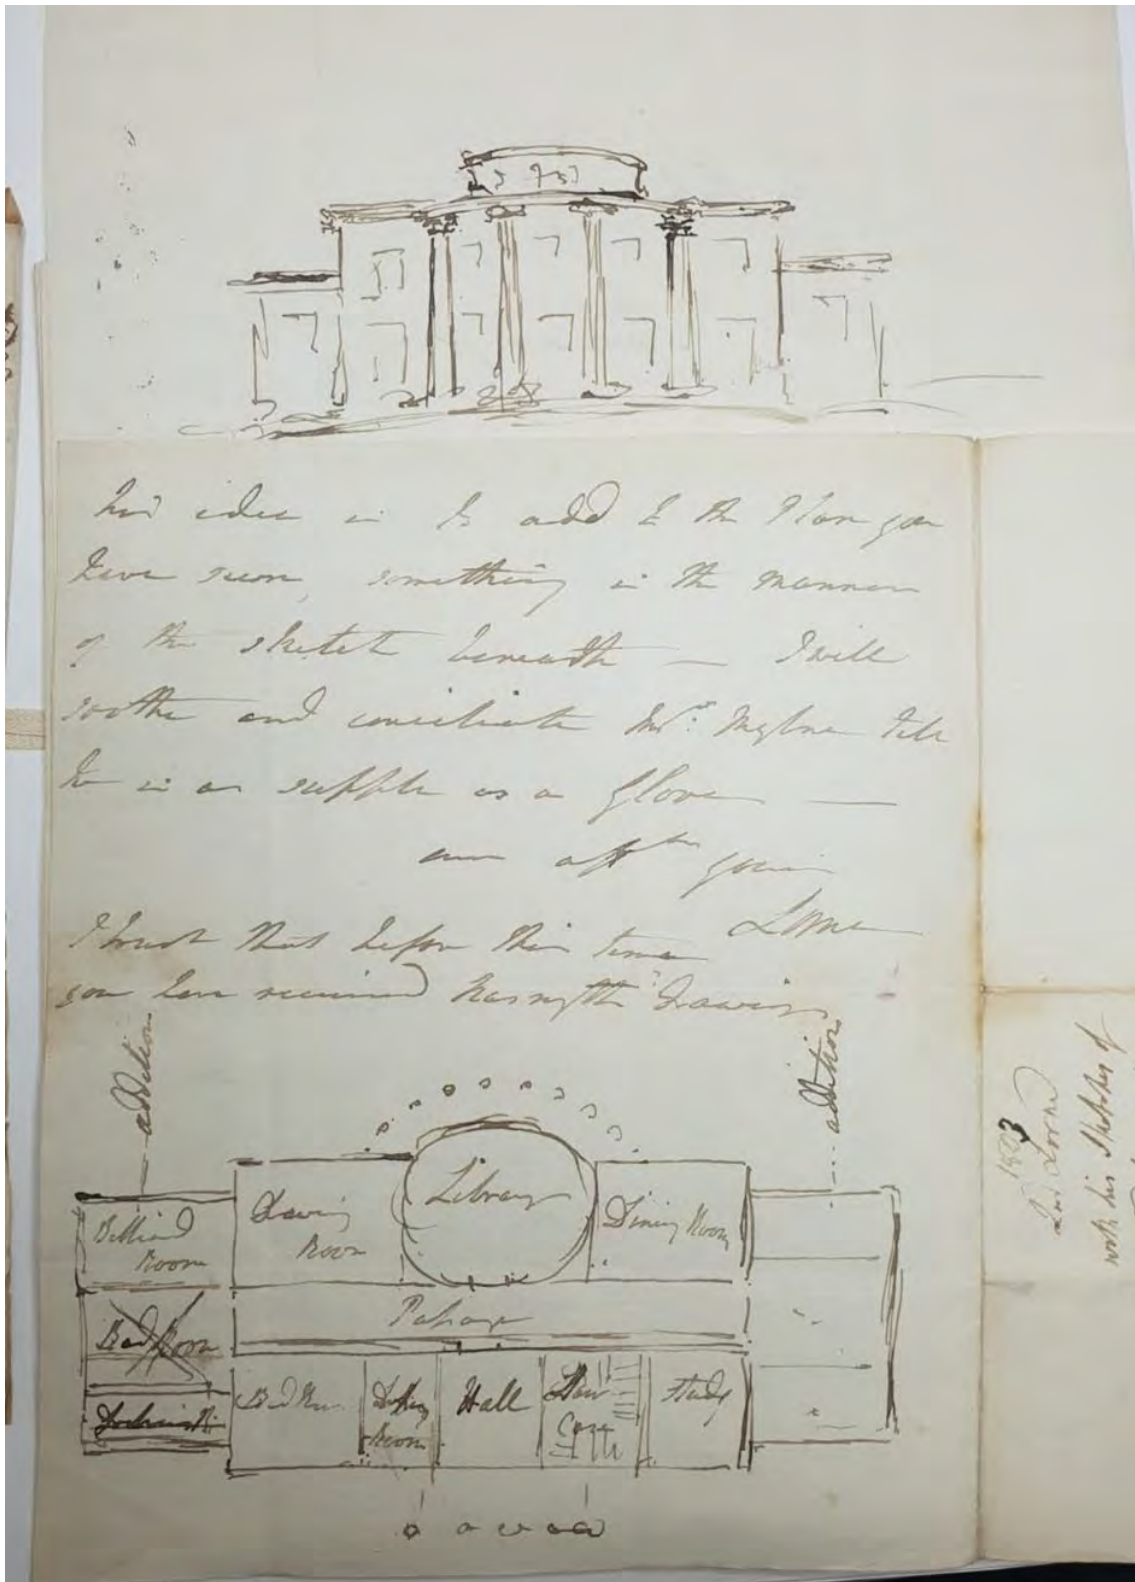 his idea is to add to the Plan you
have seen, something in the manner
of the sketch beneath — I will
soothe and conciliate Mr. Mylne till
he is as supple as a Glove —
am affly yours
Lorne
I trust that before this time
you have received Nasmyth's Drawings
addition
addition
Billiard Room
Drawing Room
Library
Dining Room
Bed Room
Passage
Bed Rm.
Dressing Room
Hall
Stair Case
Study
1803
Lord Lorne
with his Sketches of